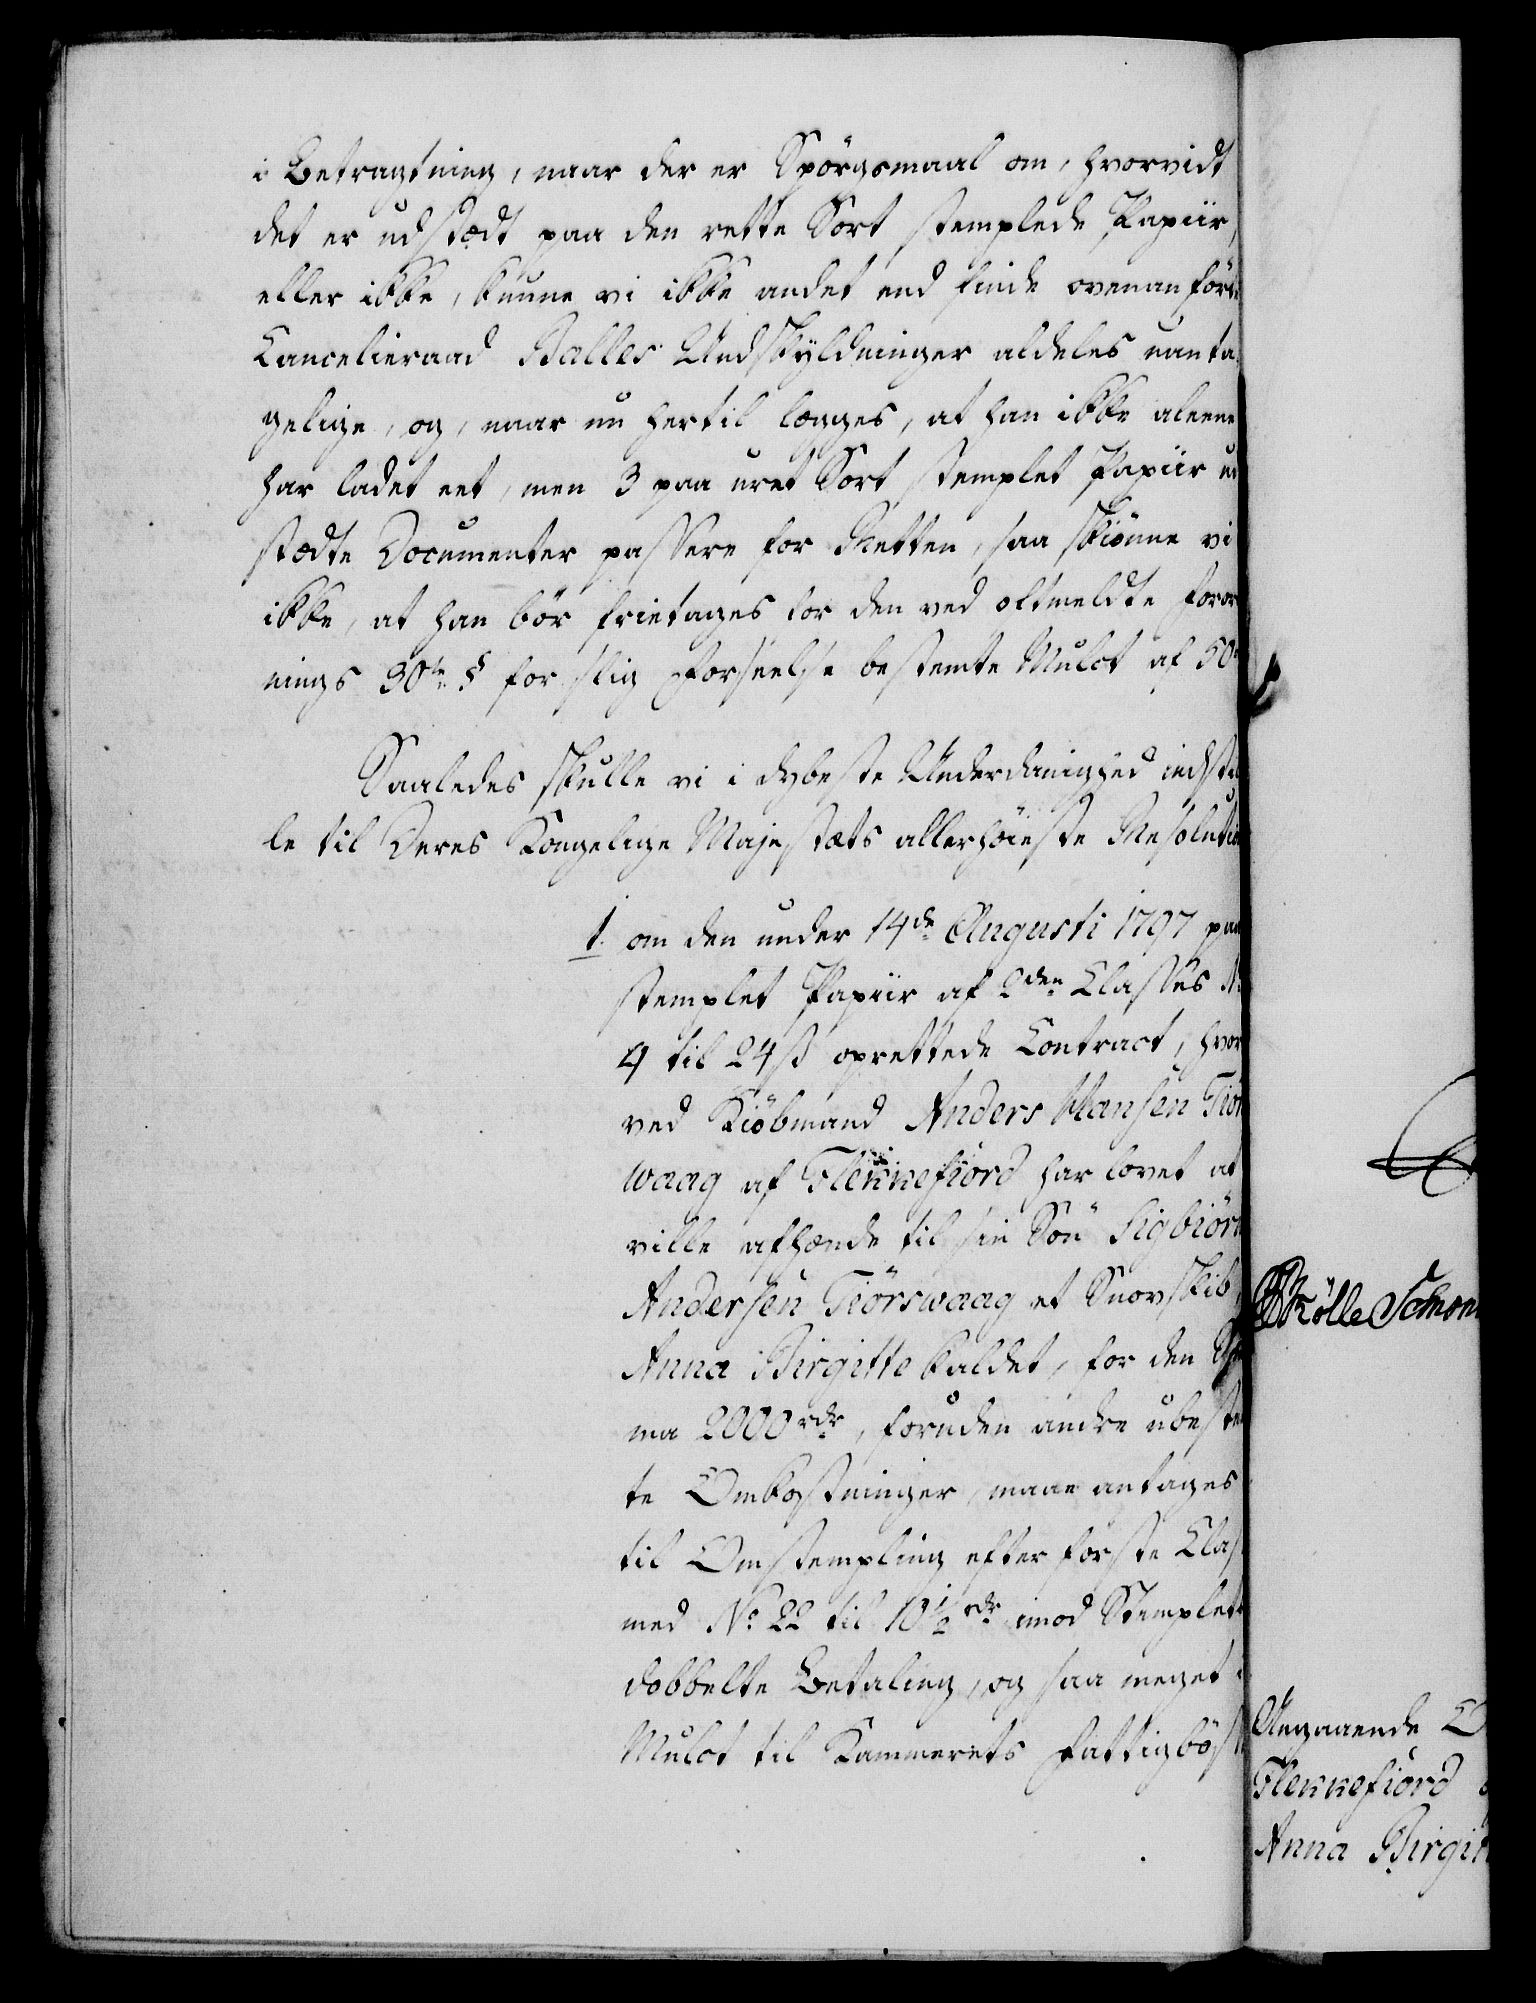 i Betragtning, naar der er Spörgsmaal om, hvorvidt
det er udstædt paa den rette Sort stemplede Papiir,
eller ikke, kunne vi ikke andet end finde ovenanförte
Cancelieraad Balles Undskyldninger aldeles uanta-
gelige, og, naar nu hertil lægges, at han ikke aleene
har ladet eet, men 3 paa uret Sort stemplet Papiir ud
stædte Documenter passere for Retten, saa skiönne vi
ikke, at han bör frietages for den ved oftmeldte Foror
nings 30te § for slig Forseelse bestemte Mulct af 50
Saaledes skulle vi i dybeste Underdanighed indstil
le til Deres Kongelige Majestæts allerhöieste Resolution
1. om den under 14de Augusti 1797 paa
stemplet Papiir af 2den Classes No
4 til 24 ß oprettede Contract, hvor
ved Kiöbmand Anders Hansen Tiör
waag af Flekkefiord har lovet at
ville afhænde til sin Sön Sigbiörn
Andersen Tiörswaag et Snovskib,
Anna Birgitte kaldet, for den Sum
ma 2000 rdr, foruden andre ubestem
te Omkostninger, maae antages
til Omstempling efter förste Clas
med No 22 til 10½ rdr imod Stemplets
dobbelte Betaling, og saa meget i
Mulct til Kammerets Fattigbös
Kölle Schion
Angaaende O
Flekkefiord
Anna Birgit